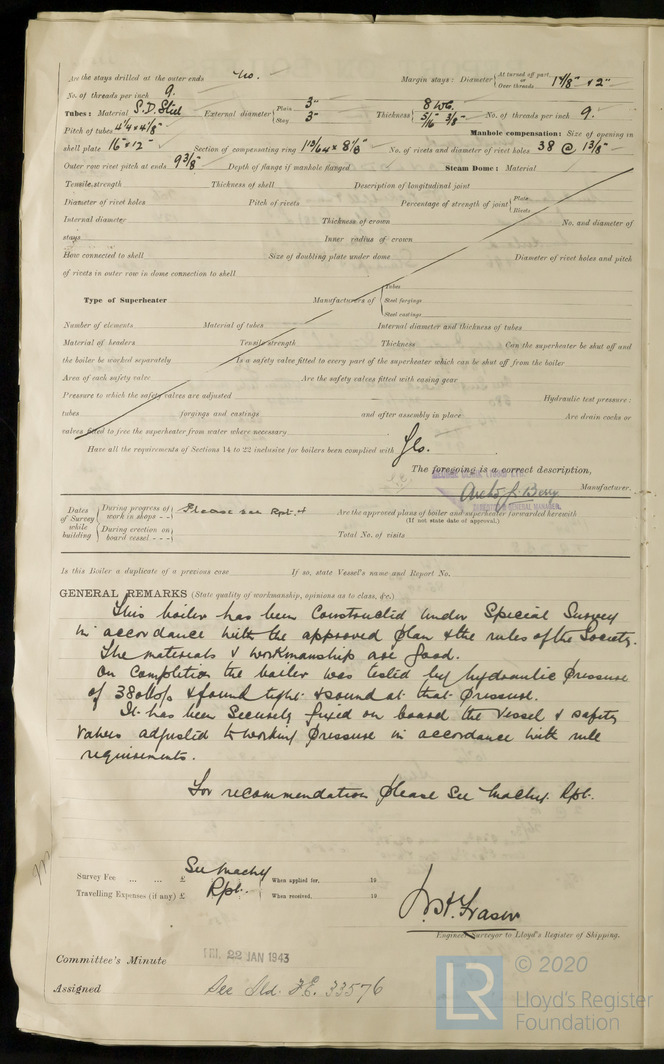 Are the stays drilled at the outer ends No. Margin stays: Diameter { At turned off part, or Over threads 1 7/8" & 2"
No. of threads per inch 9.
Tubes: Material S.D. Steel External diameter { Plain 3" Stay 3" Thickness { 8 WG. 5/16" 3/8" No. of threads per inch 9.
Pitch of tubes 4 1/4 x 4 1/8" Manhole compensation: Size of opening in
shell plate 16" x 12" Section of compensating ring 1 3/64 x 8 1/8" No. of rivets and diameter of rivet holes 38 @ 1 3/8"
Outer row rivet pitch at ends 9 3/8" Depth of flange if manhole flanged Steam Dome: Material
Tensile strength Thickness of shell Description of longitudinal joint
Diameter of rivet holes Pitch of rivets Percentage of strength of joint { Plate Rivets
Internal diameter Thickness of crown No. and diameter of
stays Inner radius of crown
How connected to shell Size of doubling plate under dome Diameter of rivet holes and pitch
of rivets in outer row in dome connection to shell
Type of Superheater Manufacturers of { Tubes Steel forgings Steel castings
Number of elements Material of tubes Internal diameter and thickness of tubes
Material of headers Tensile strength Thickness Can the superheater be shut off and
the boiler be worked separately Is a safety valve fitted to every part of the superheater which can be shut off from the boiler
Area of each safety valve Are the safety valves fitted with easing gear
Pressure to which the safety valves are adjusted Hydraulic test pressure:
tubes forgings and castings and after assembly in place Are drain cocks or
valves fitted to free the superheater from water where necessary
Have all the requirements of Sections 14 to 22 inclusive for boilers been complied with Yes.
The foregoing is a correct description,
Manufacturer.
DIRECTOR & GENERAL MANAGER
Dates of Survey while building { During progress of work in shops - - Please see Rpt. 4 Are the approved plans of boiler and superheater forwarded herewith
(If not state date of approval.)
During erection on board vessel - - - Total No. of visits
Is this Boiler a duplicate of a previous case If so, state Vessel's name and Report No.
GENERAL REMARKS (State quality of workmanship, opinions as to class, &c.)
This boiler has been Constructed under Special Survey
in accordance with the approved plan & the rules of the Society.
The materials & workmanship are good.
On completion the boiler was tested by hydraulic pressure
of 380 lbs & found tight & sound at that pressure.
It has been Securely fixed on board the Vessel & safety
Valves adjusted to working pressure in accordance with rule
requirements.
For recommendation please see Machy. Rpt.
Survey Fee ... ... £ See Machy When applied for, 19
Travelling Expenses (if any) £ Rpt. When received, 19
Fraser
Engineer Surveyor to Lloyd's Register of Shipping.
Committee's Minute FRI. 22 JAN 1943
Assigned See F.E. 33576
LR © 2020
Lloyd's Register
Foundation